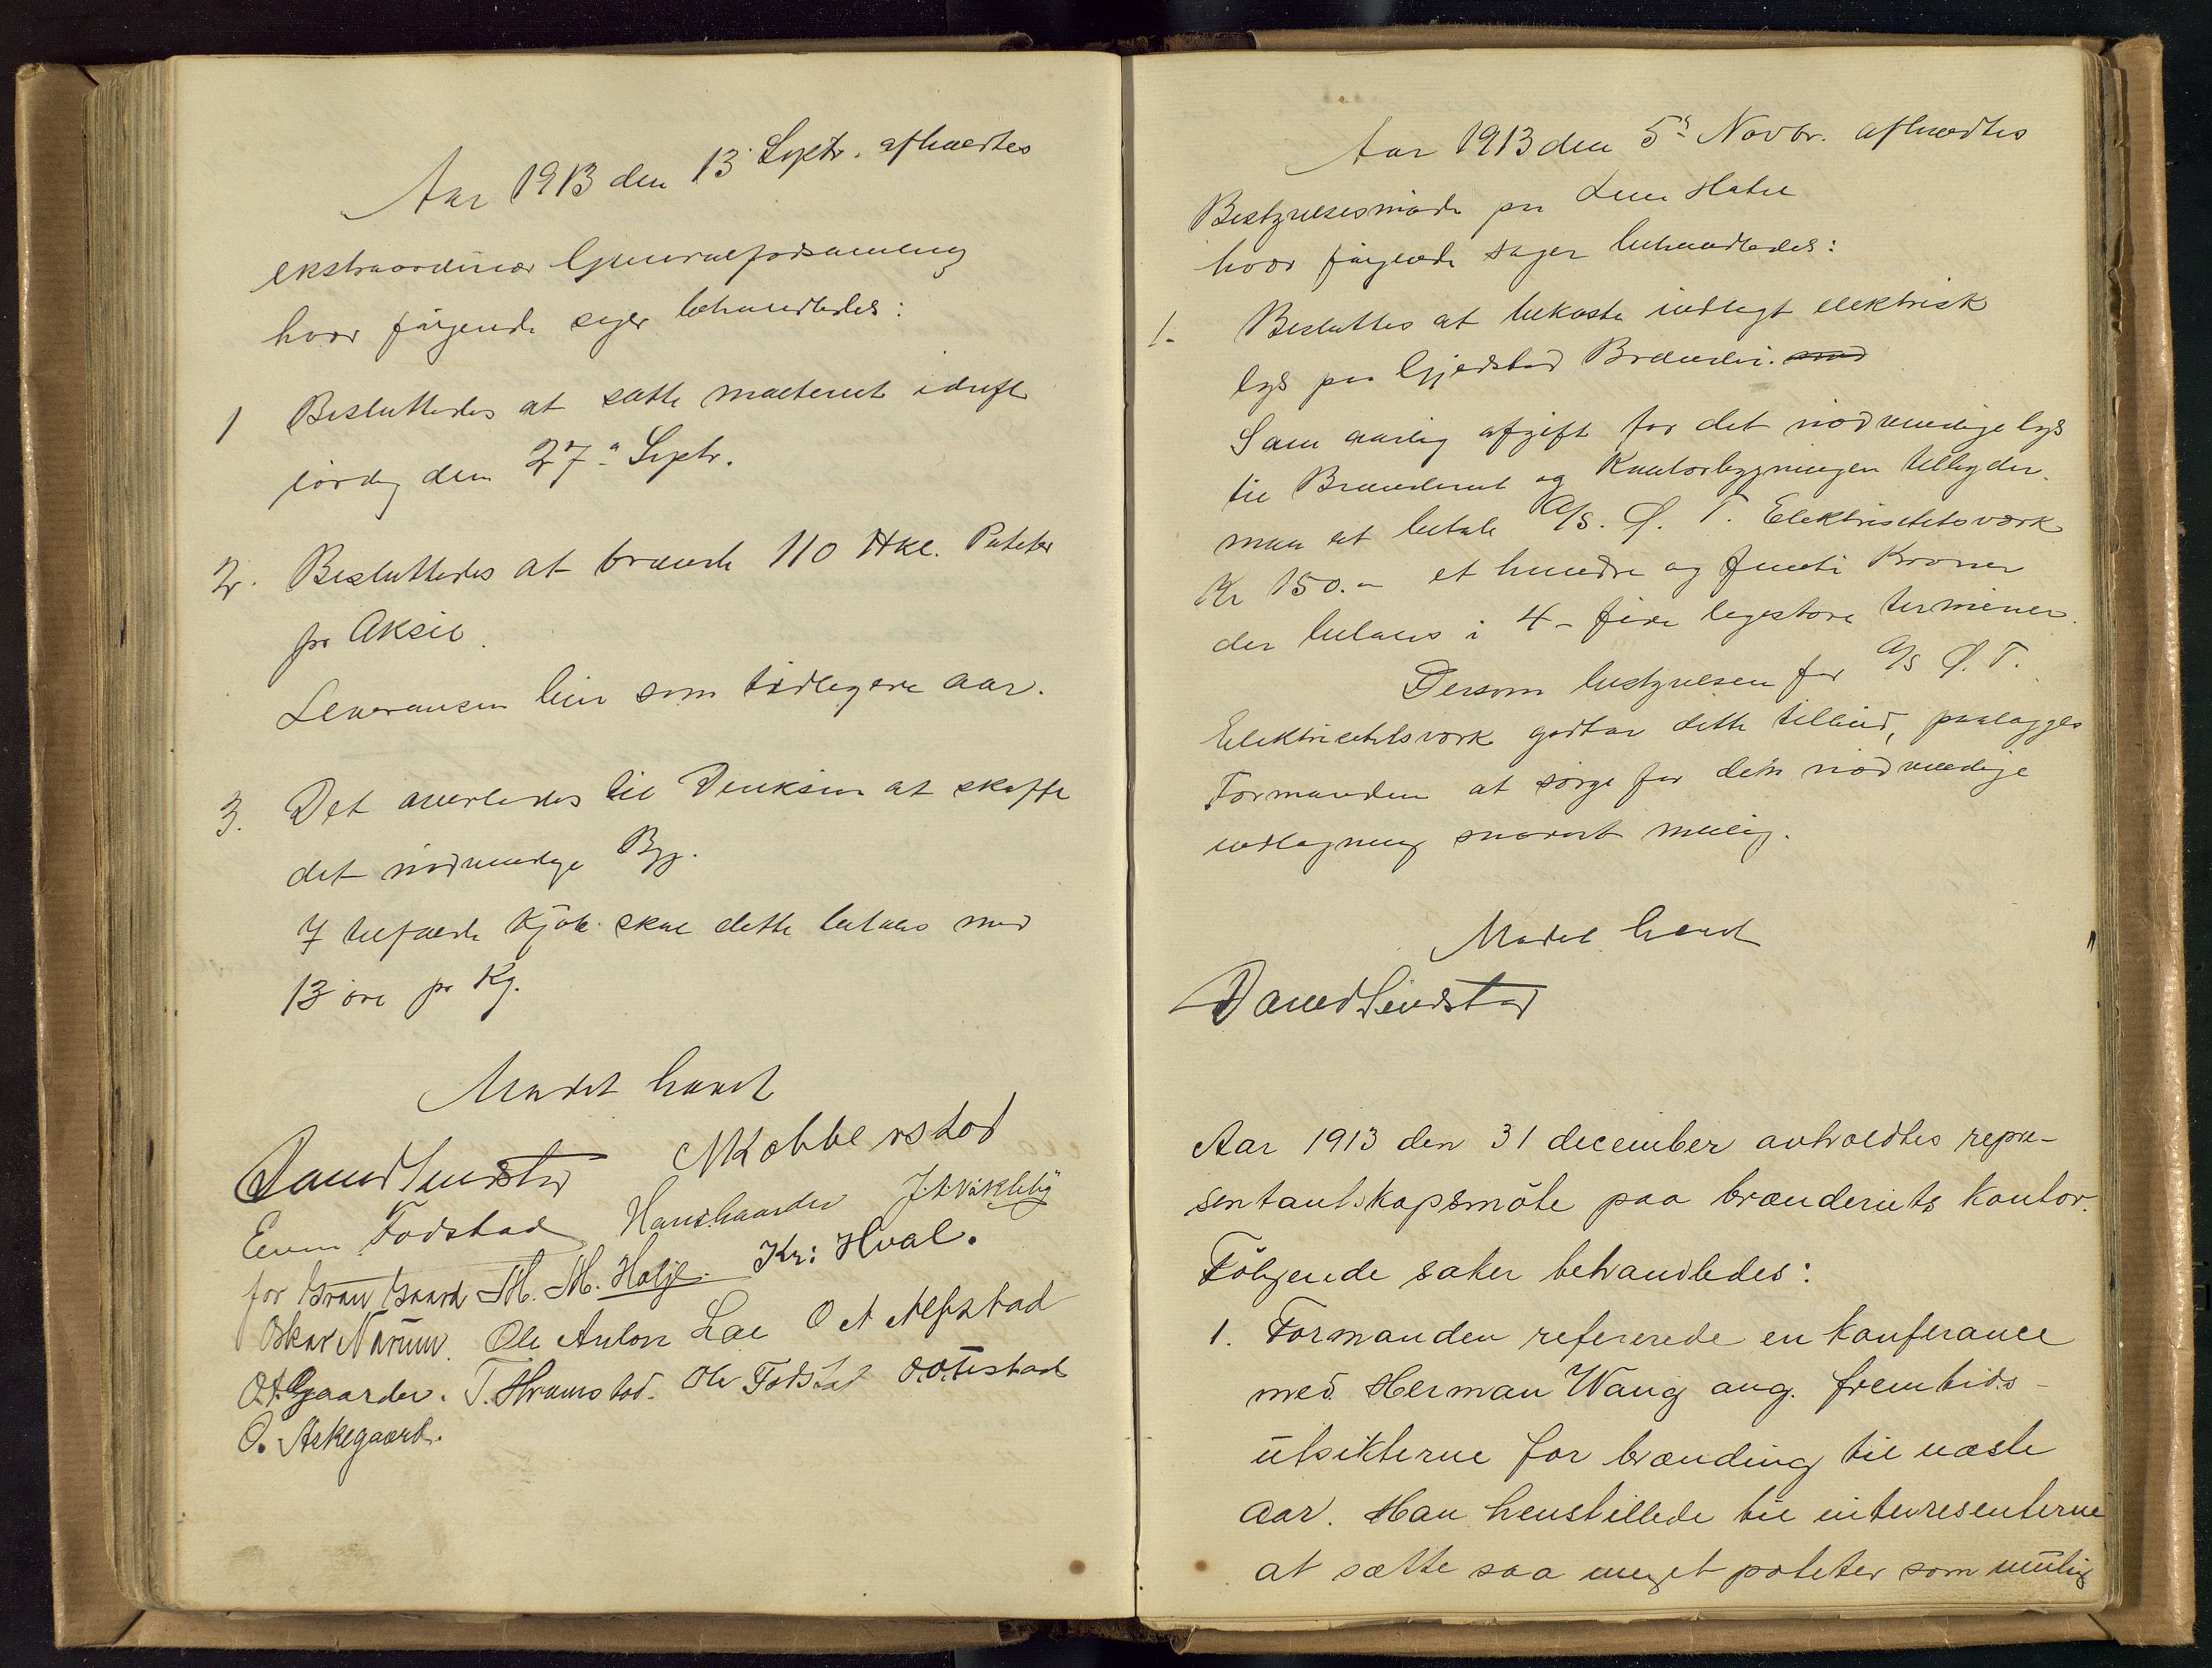 Aar 1913 den 13 Septr. afholdtes
ekstraordinær Generalforsamling
hvor følgende sager behandledes:
1 Besluttedes at sætte maskineriet i drift
lørdag den 27de Septr.
2. Besluttedes at brænde 110 Hkl. Poteter
pr Aksie.
Leveransen blir som tidligere aar.
3. Det overlodes til Direksion at skaffe
det nødvendige Byg.
I tilfælde Kjøb skal dette betales med
13 øre pr Kg.
Mødet hævet
N Kobberstad
Even Fodstad Hans Gaarder
for Gran Gaard M. M. Holje. Kr: Hval.
Oskar Narum. Ole Anton Lae O A Alfstad
O.A. Gjaarder. T. Hramstad. Ole Fodstad O.O. Testad
O. Askegaard.
Aar 1913 den 5te Novbr. afholdtes
Bestyrelsesmøde paa Lena Hotel
hvor følgende sager behandledes:
1. Besluttes at bekoste indlagt elektrisk
lys paa Gjedstad Brænderi.
Som aarlig afgift for det nødvendige lys
til Brænderiet og Kontorbygningen tilbyder
man at betale A/S. Ø. T. Elektrisitetsværk
Kr 150.- et hundre og femti Kroner
der betales i 4- fire ligestore terminer.
Dersom bestyrelsen for A/S Ø. T.
Elektricitetsværk godtar dette tilbud, paalægges
Formanden at sørge for den nødvendige
indlægning snarest mulig.
Mødet hævet
Aar 1913 den 31 december avholdtes repræ-
sentantskapsmöte paa brænderiets kontor.
Fölgende saker behandledes:
1. Formanden refererede en konferance
med Herman Wang ang. fremtids-
utsikterne for brænding til næste
aar. Han henstillede til interesenterne
at sætte saa meget poteter som mulig